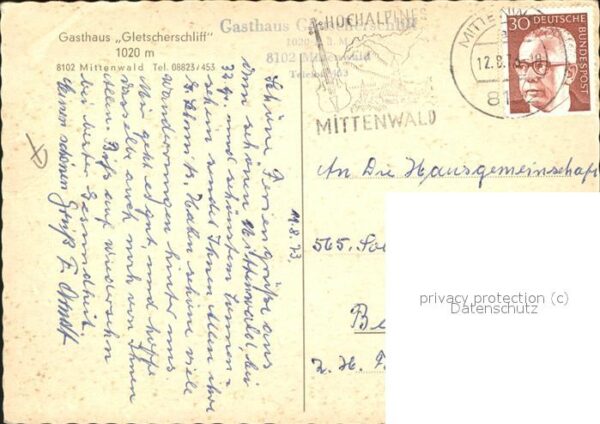 Gasthaus „Gletscherschliff"
1020 m
8102 Mittenwald Tel. 08823/453
Gasthaus Gletscherschliff
8102 Mittenwald
Telefon 453
HOCHALPINES
MITTENWALD
MITTENWALD
12.8.73
81
30
DEUTSCHE
BUNDESPOST
11.8.73.
Schöne Feriengrüße aus
dem schönen Mittenwald bei
32 gr. und schönstem Sonnen-
schein sendet Ihnen Allen Ihre
schöne viele
Wanderungen hinter uns.
Mir geht es gut, und hoffe
dasselbe auch noch von Ihnen
Allen. Bis auf wiedersehn
bei bester Gesundheit.
einen schönen Gruß F.
An Die Hausgemeinschaft
565.
Be
z. H. F.
privacy protection (c)
Datenschutz